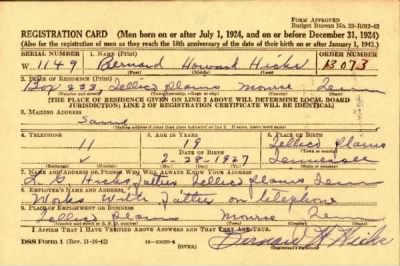 FORM APPROVED
Budget Bureau No. 33-R082-42
REGISTRATION CARD (Men born on or after July 1, 1924, and on or before December 31, 1924)
(Also for the registration of men as they reach the 18th anniversary of the date of their birth on or after January 1, 1943.)
SERIAL NUMBER 1. NAME (Print) ORDER NUMBER
W 1149 Bernard Howard Hicks 13073
(First) (Middle) (Last)
2. PLACE OF RESIDENCE (Print)
Box 233 Tellico Plains Monroe Tenn
[THE PLACE OF RESIDENCE GIVEN ON LINE 2 ABOVE WILL DETERMINE LOCAL BOARD
JURISDICTION; LINE 2 OF REGISTRATION CERTIFICATE WILL BE IDENTICAL]
3. MAILING ADDRESS
Same
4. TELEPHONE 5. AGE IN YEARS 6. PLACE OF BIRTH
19 Tellico Plains
DATE OF BIRTH
2-28-1927 Tennessee
7. NAME AND ADDRESS OF PERSON WHO WILL ALWAYS KNOW YOUR ADDRESS
Hicks Tellico Plains Tenn
8. EMPLOYER'S NAME AND ADDRESS
Works with on telephone
9. PLACE OF EMPLOYMENT OR BUSINESS
Tellico Plains Monroe Tenn
I AFFIRM THAT I HAVE VERIFIED ABOVE ANSWERS AND THAT THEY ARE TRUE.
DSS Form 1 (Rev. 11-16-42) (OVER) Bernard H Hicks